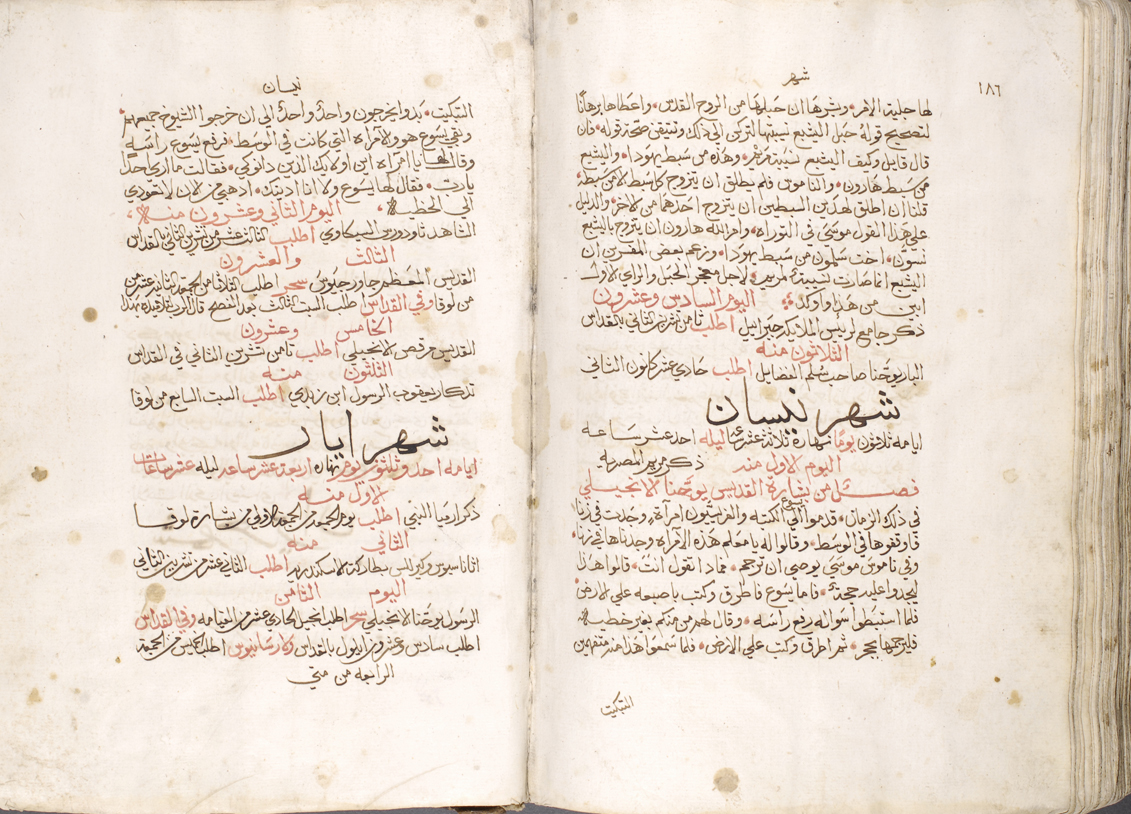 شهر
١٨٦
لها جليت الامر وبشرها ان حبلها من الروح القدس واعطاها برهانا
لتصحيح قوله حبل اليشبع نسيبتها لتركن الي ذلك وتتيقن صحة قوله فان
قال قايل وكيف اليشبع نسيبة مريم وهذه من سبط يهودا واليشبع
من سبط هارون والناموس فلم يطلق ان يتزوج كل سبط الا من سبطه
قلنا ان اطلق لهذين السبطين ان يتزوج احدهما من الاخر والدليل
علي هذا القول موسي في التوراه وامر الله هارون ان يتزوج باليشبع
اخت سلمون من سبط يهودا وزعم بعض المفسرين ان
اليشبع انما صارت نسيبة لمريم لاجل معجز الحبل والراي الاول
ابين من هذا واوكد اليوم السادس وعشرون
ذكر جامع لرييس الملايكه جبراييل اطلب ثامن تشرين الثاني بالقداس
الثلاثون منه
البار يوحنا صاحب سلم الفضايل اطلب حادي عشر كانون الثاني
شهر نيسان
ايامه ثلاثون يوما نهاره ثلاثة عشر ساعه ليله احد عشر ساعه
اليوم الاول منه ذكر مريم المصريه
فصل من بشارة القديس يوحنا الانجيلي
في ذلك الزمان قدموا الي يسوع الكتبه والفريسيون امرأة وجدت في زنا
فاوقفوها في الوسط وقالوا له يا معلم هذه الامراه وجدناها في زنا
وفي ناموس موسي يوصي ان ترجم فماذا تقول انت قالوا هذا
ليجدوا عليه حجة فاما يسوع فاطرق وكتب باصبعه علي الارض
فلما استبطوا سواله رفع راسه وقال لهم من منكم بغير خطيه
فليرجمها بحجر ثم اطرق وكتب علي الارض فلما سمعوا هذا منه متفهمين
التبكيت
نيسان
التبكيت بدوا يخرجون واحدا واحدا الي ان خرجوا الشيوخ جميعهم
وبقي يسوع هو والامراه التي كانت في الوسط فرفع يسوع راسه
وقال لها يا امراه اين اولايك الذين دانوكي فقالت ما اري احدا
يا رب فقال لها يسوع ولا انا ادينك اذهبي من الان لا تعودي
الي الخطيه اليوم الثاني وعشرون منه
الشاهد تاودورس السيكاوي اطلب الثالث عشر من تشرين الثاني بالقداس
الثالث والعشرون
القديس المعظم جاورجيوس سحر اطلب الثلاثا من الجمعة الثانية عشر
من لوقا وفي القداس اطلب السبت الثالث بعد الفصح قال الرب لتلاميذه بهذا
الخامس وعشرون
القديس مرقص الانجيلي اطلب ثامن تشرين الثاني في القداس
الثلثون منه
تذكار يعقوب الرسول ابن زبدي اطلب السبت السابع من لوقا
شهر ايار
ايامه احد وثلثون يوم نهاره اربعة عشر ساعه ليله عشر ساعات
الاول منه
ذكر ارميا النبي اطلب يوم الجمعه من الجمعه الاولي من بشارة لوقا
الثاني منه
اثاناسيوس وكيرللس بطاركة الاسكندريه اطلب الثاني عشر من تشرين الثاني
اليوم الثامن
الرسول يوحنا الانجيلي سحر اطلب انجيل الحادي عشر من القيامه وفي القداس
اطلب سادس وعشرون ايلول بالقداس وكارسانيوس اطلب الخميس من الجمعة
الرابعه من متي